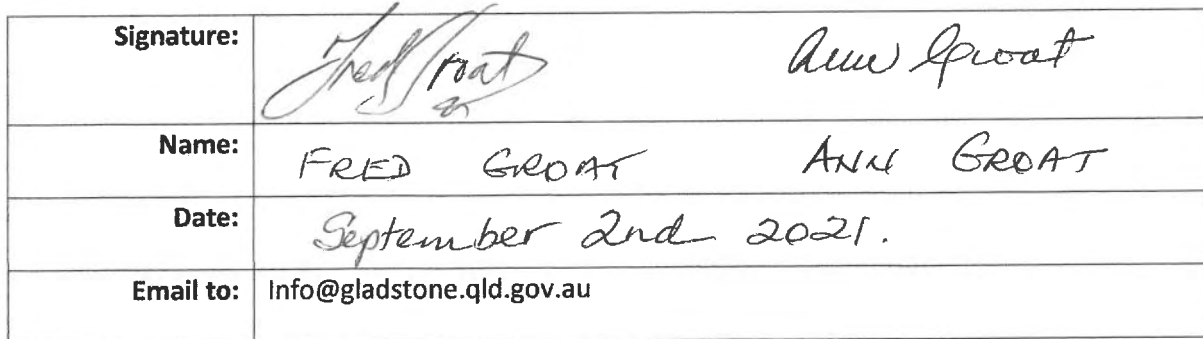 Signature: Fred Groat Ann Groat
Name: FRED GROAT ANN GROAT
Date: September 2nd 2021.
Email to: Info@gladstone.qld.gov.au